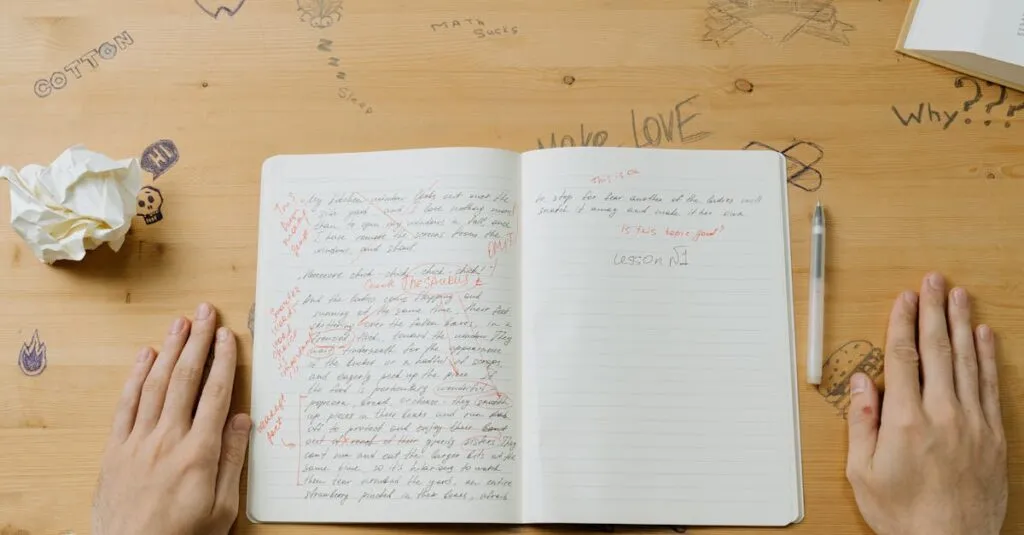 COTTON
MATH
SUCKS
Sleep
HI
Make LOVE
Why???
My kitchen window looks out over the
pin yard, and I love nothing more
than to open my windows in fall, once
I have remove the screens from the
windows, and shout
OMIT
chick chick, chick-chick!
Check THESAURUS
And the ladies come flapping and
running at the same time, their feet
over the fallen leaves, in a
frenzied, towards the window. They
wait underneath for the appearance
of the bucket or a handful of scraps
and eagerly pick up the
the food is particularly wonderful
popcorn, bread, or cheese, they
up pieces in their beaks and run
off to protect and enjoy their
out of reach of their greedy sisters. They
can't run and eat the larger bits at the
same time, so it's hilarious to watch
them tear around the yard, an entire
strawberry in their beaks, afraid
This is OK
to stop for fear another of the ladies will
snatch it away and make it her own
Is this topic good?
Lesson N1